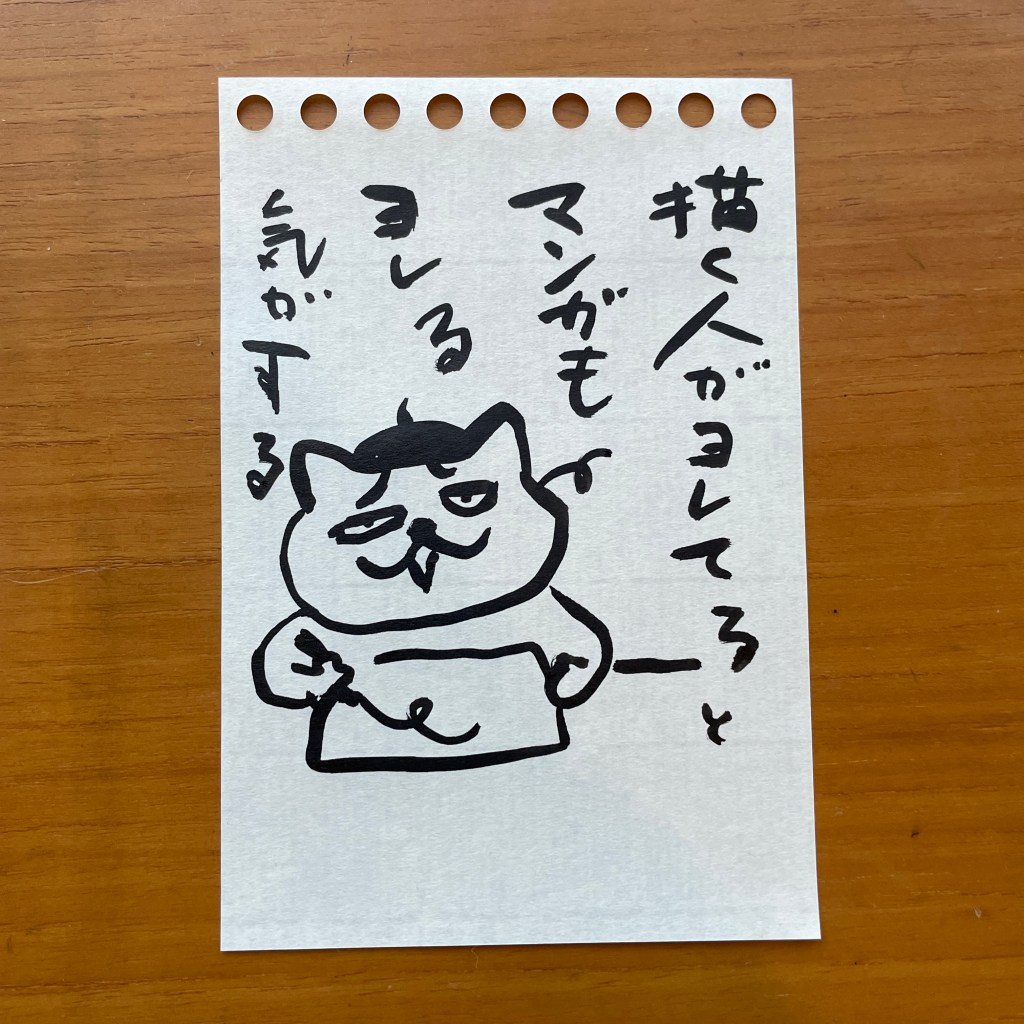 描く人がヨレてると
マンガも
ヨレる
気がする